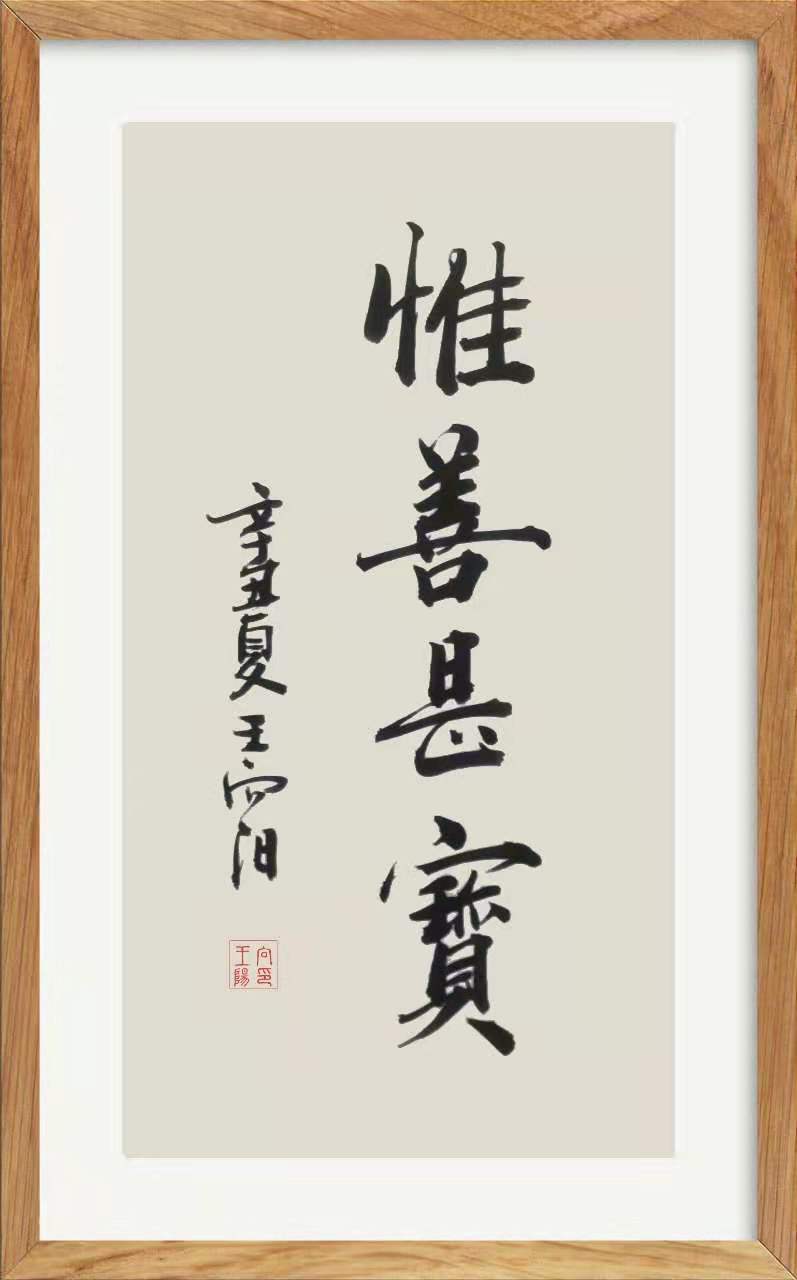 惟善甚寶
辛丑夏王向阳
向印
王陽